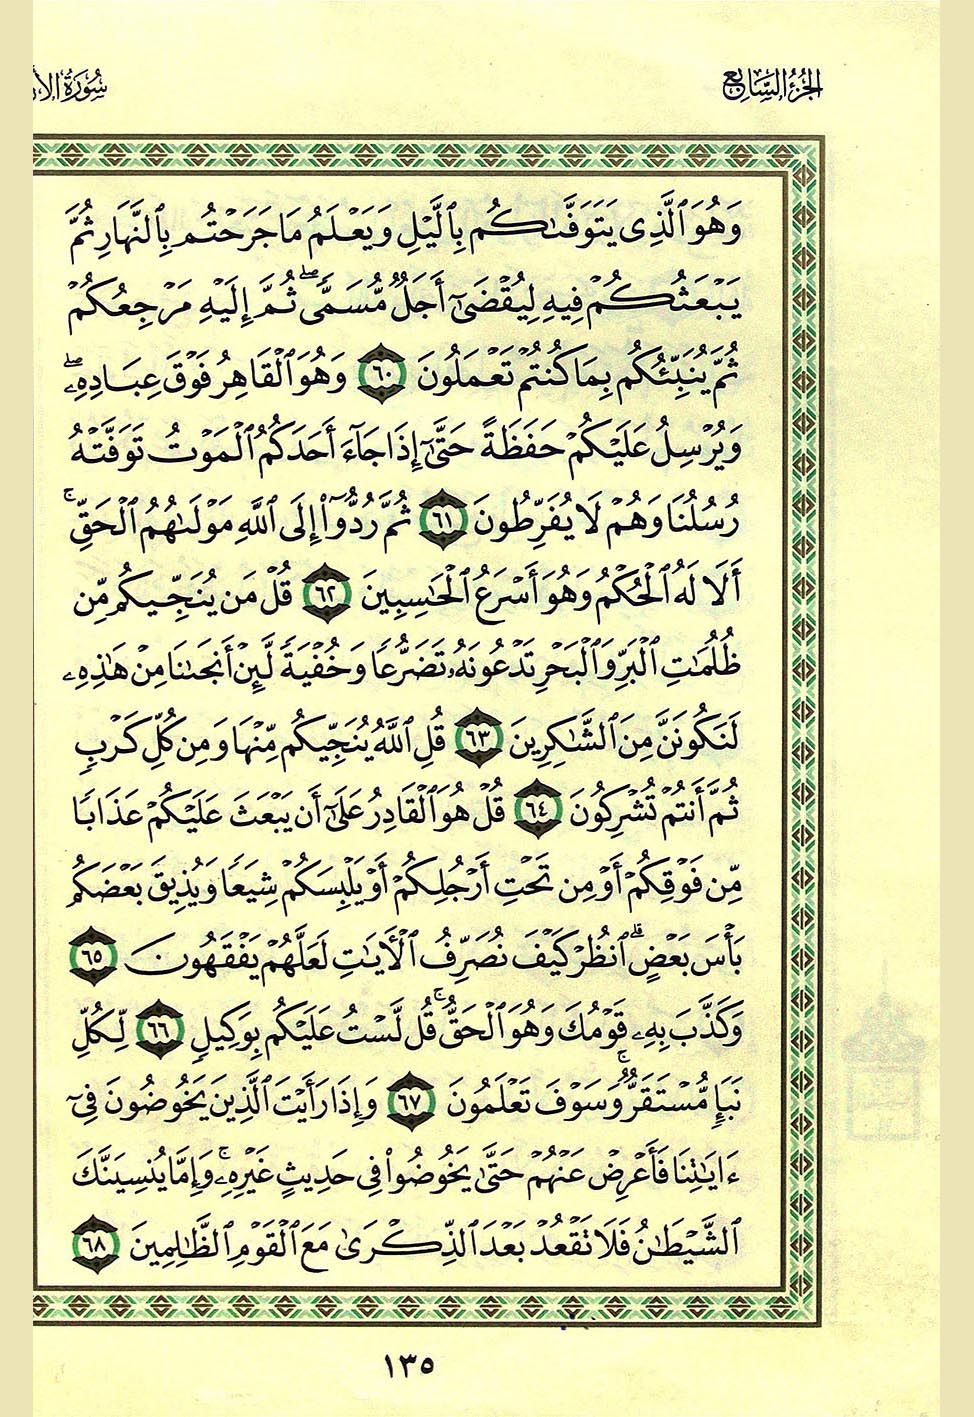 الجزء السابع
سورة الأ
وَهُوَ ٱلَّذِى يَتَوَفَّىٰكُم بِٱلَّيْلِ وَيَعْلَمُ مَا جَرَحْتُم بِٱلنَّهَارِ ثُمَّ
يَبْعَثُكُمْ فِيهِ لِيُقْضَىٰٓ أَجَلٌ مُّسَمًّى ۖ ثُمَّ إِلَيْهِ مَرْجِعُكُمْ
ثُمَّ يُنَبِّئُكُم بِمَا كُنتُمْ تَعْمَلُونَ ٦٠ وَهُوَ ٱلْقَاهِرُ فَوْقَ عِبَادِهِۦ ۖ
وَيُرْسِلُ عَلَيْكُمْ حَفَظَةً حَتَّىٰٓ إِذَا جَآءَ أَحَدَكُمُ ٱلْمَوْتُ تَوَفَّتْهُ
رُسُلُنَا وَهُمْ لَا يُفَرِّطُونَ ٦١ ثُمَّ رُدُّوٓا۟ إِلَى ٱللَّهِ مَوْلَىٰهُمُ ٱلْحَقِّ ۚ
أَلَا لَهُ ٱلْحُكْمُ وَهُوَ أَسْرَعُ ٱلْحَٰسِبِينَ ٦٢ قُلْ مَن يُنَجِّيكُم مِّن
ظُلُمَٰتِ ٱلْبَرِّ وَٱلْبَحْرِ تَدْعُونَهُۥ تَضَرُّعًا وَخُفْيَةً لَّئِنْ أَنجَىٰنَا مِنْ هَٰذِهِۦ
لَنَكُونَنَّ مِنَ ٱلشَّٰكِرِينَ ٦٣ قُلِ ٱللَّهُ يُنَجِّيكُم مِّنْهَا وَمِن كُلِّ كَرْبٍ
ثُمَّ أَنتُمْ تُشْرِكُونَ ٦٤ قُلْ هُوَ ٱلْقَادِرُ عَلَىٰٓ أَن يَبْعَثَ عَلَيْكُمْ عَذَابًا
مِّن فَوْقِكُمْ أَوْ مِن تَحْتِ أَرْجُلِكُمْ أَوْ يَلْبِسَكُمْ شِيَعًا وَيُذِيقَ بَعْضَكُم
بَأْسَ بَعْضٍ ۗ ٱنظُرْ كَيْفَ نُصَرِّفُ ٱلْـَٔايَٰتِ لَعَلَّهُمْ يَفْقَهُونَ ٦٥
وَكَذَّبَ بِهِۦ قَوْمُكَ وَهُوَ ٱلْحَقُّ ۚ قُل لَّسْتُ عَلَيْكُم بِوَكِيلٍ ٦٦ لِّكُلِّ
نَبَإٍ مُّسْتَقَرٌّ ۚ وَسَوْفَ تَعْلَمُونَ ٦٧ وَإِذَا رَأَيْتَ ٱلَّذِينَ يَخُوضُونَ فِىٓ
ءَايَٰتِنَا فَأَعْرِضْ عَنْهُمْ حَتَّىٰ يَخُوضُوا۟ فِى حَدِيثٍ غَيْرِهِۦ ۚ وَإِمَّا يُنسِيَنَّكَ
ٱلشَّيْطَٰنُ فَلَا تَقْعُدْ بَعْدَ ٱلذِّكْرَىٰ مَعَ ٱلْقَوْمِ ٱلظَّٰلِمِينَ ٦٨
١٣٥